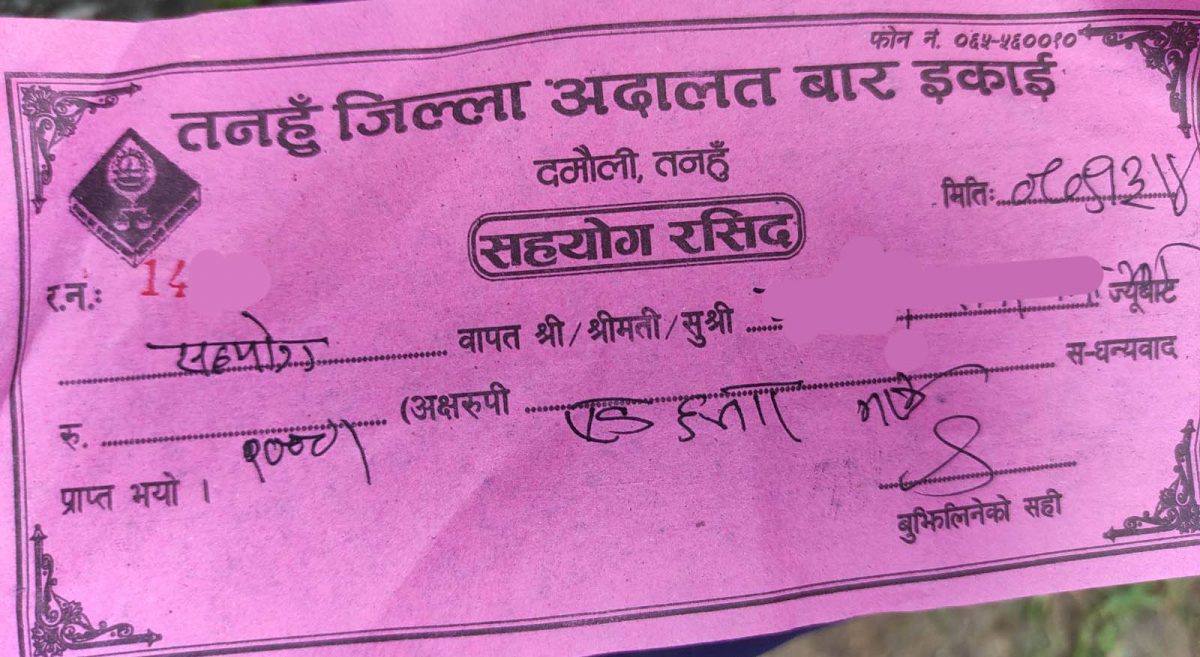 फोन नं. ०६५-५६००१०
तनहुँ जिल्ला अदालत बार इकाई
दमौली, तनहुँ
मितिः
सहयोग रसिद
र.नं.: 14
सहयोग वापत श्री/श्रीमती/सुश्री ज्यूबाट
रु. १०००/- (अक्षरुपी एक हजार मात्र स-धन्यवाद
प्राप्त भयो ।
बुझिलिनेको सही